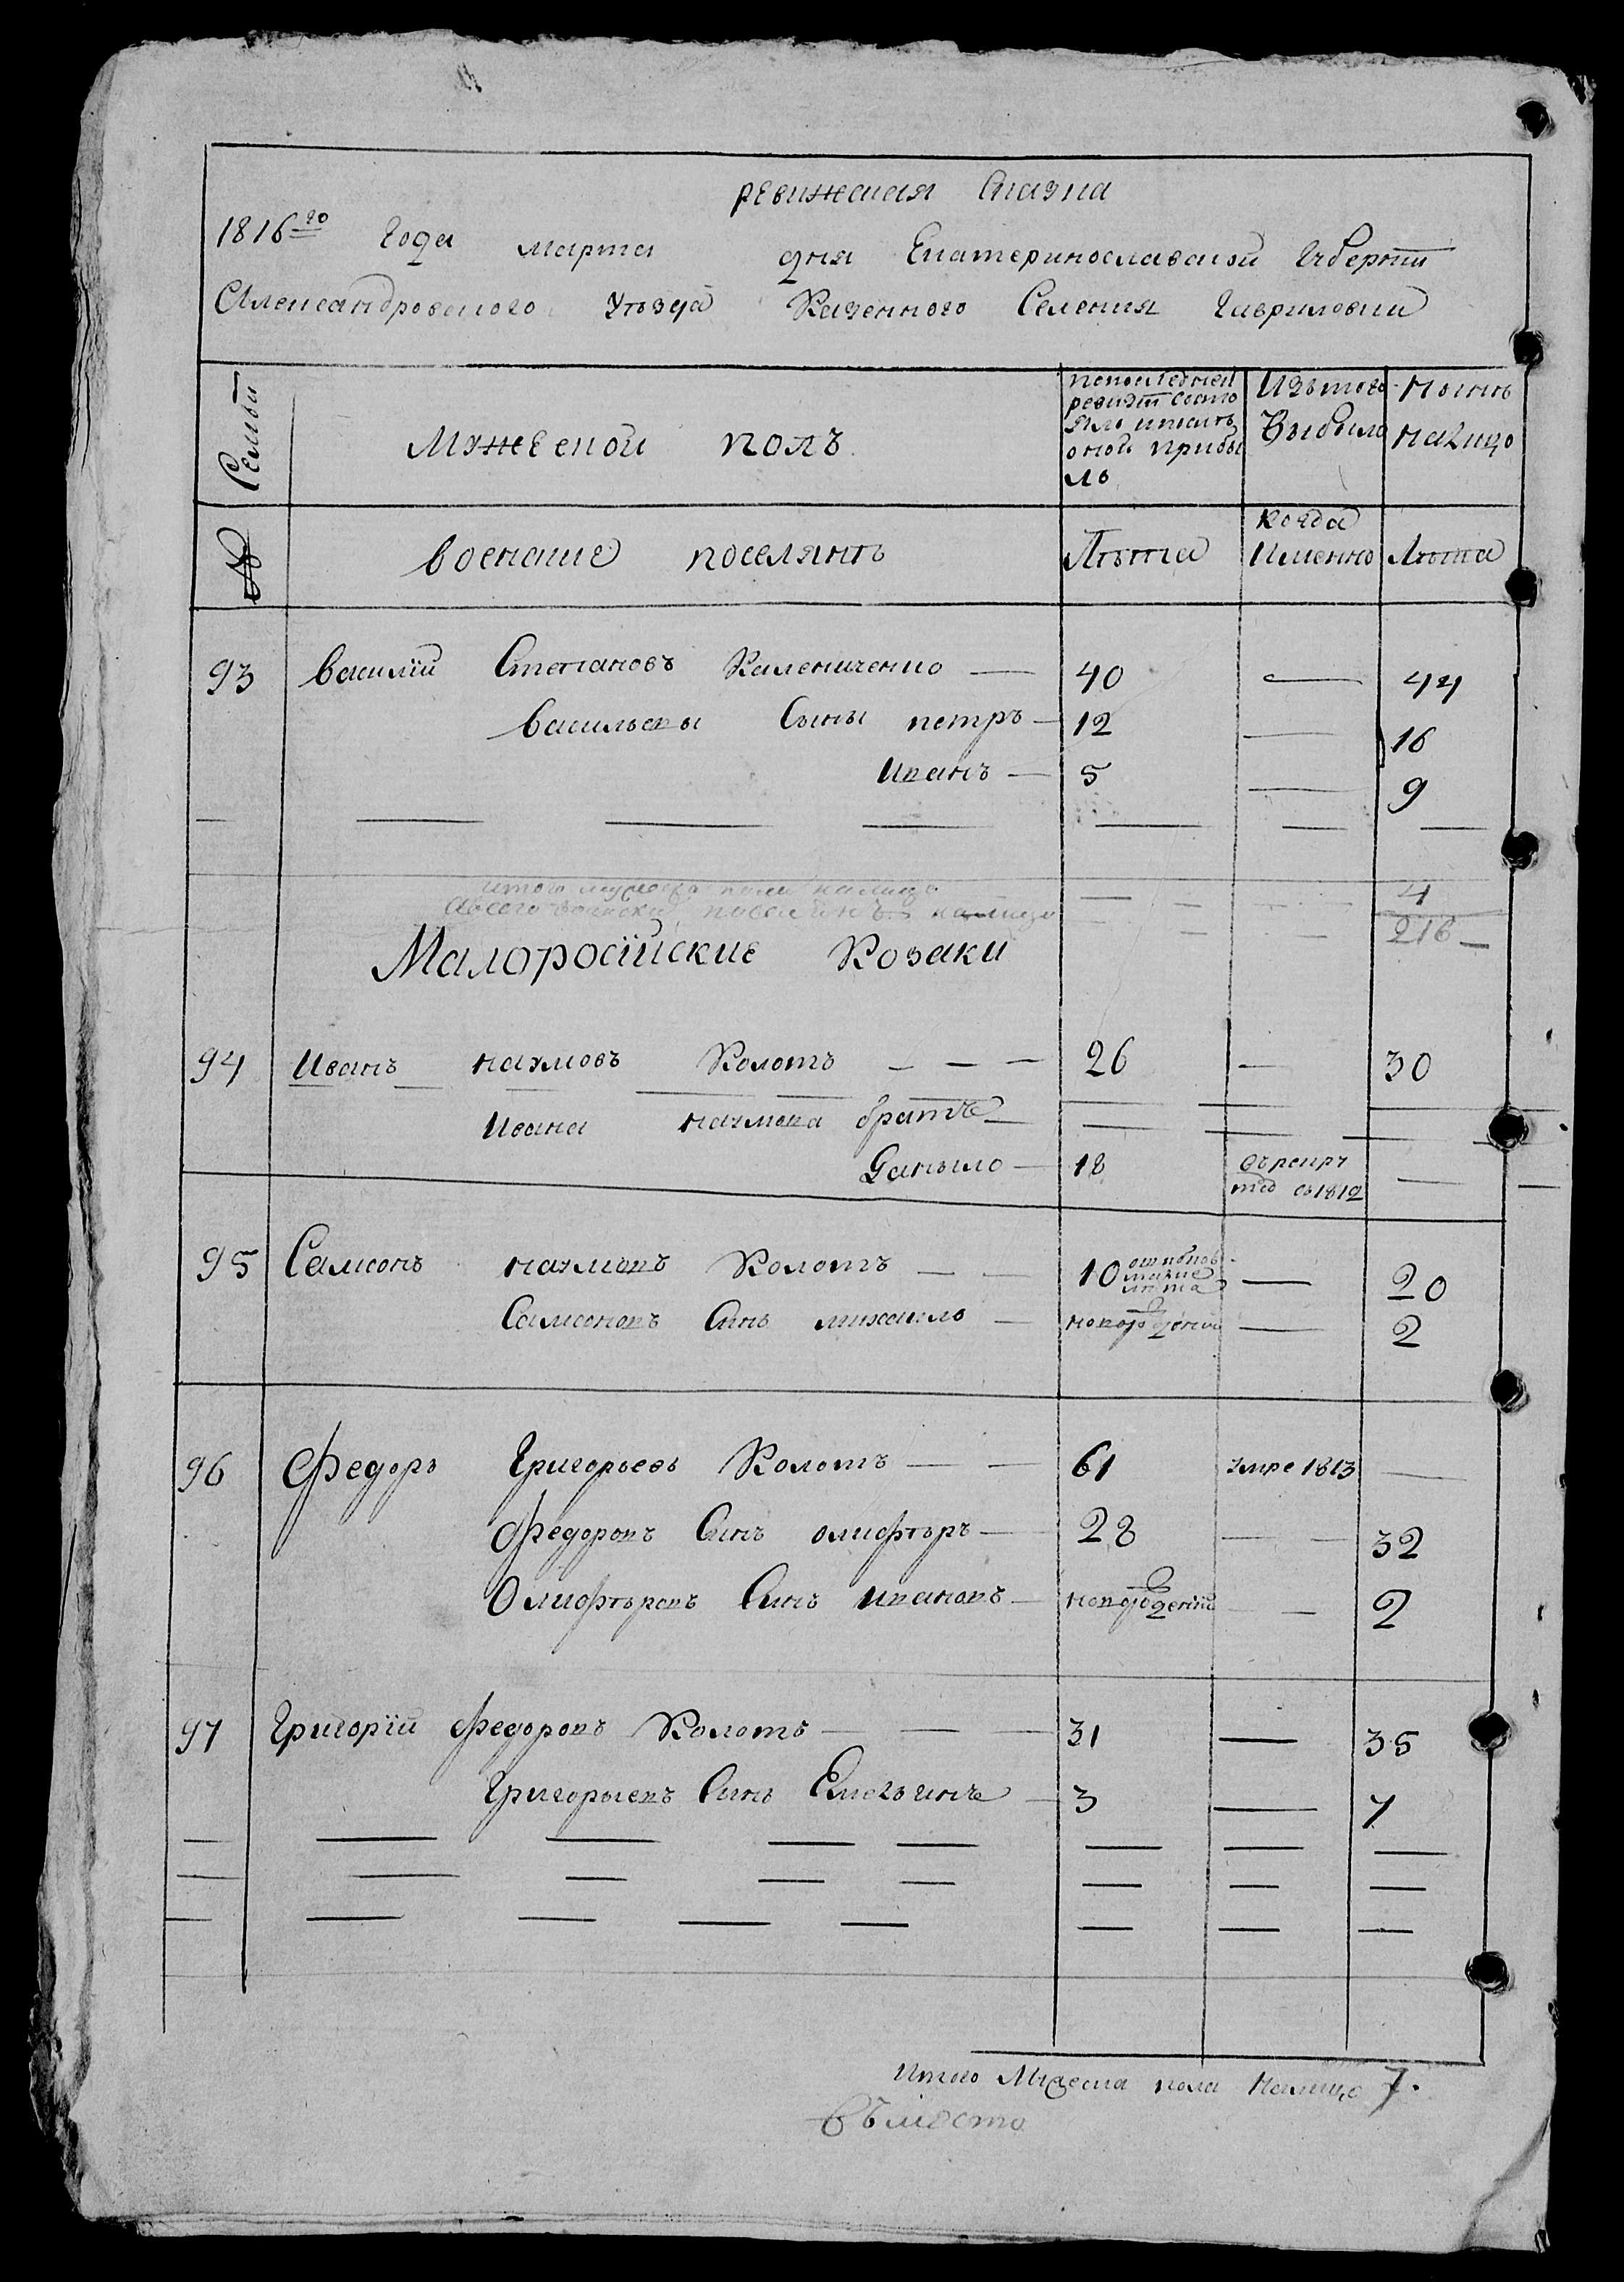 ревижская сказка
1816го Года марта дня Екатеринославской Губернїи
Александровского Уѣзда Казенного Селения Гавриловки
Семьи
Мужеской полъ
попоследней ревизїи состояло и после оной прибыло
Изътого Выбыло
Нынѣ налицо
№
военские поселянѣ
Лѣта
когда Именно
Лѣта
93 василїй Степановъ Калениченко — 40 — 44
васильевы Сыны петръ — 12 — 16
Иванъ — 5 — 9
итого мужеска пола налицо 4
всего воински поселянъ налицо 216
Малоросїйские Козаки
94 Иванъ наумовъ Колотъ — — — 26 — 30
Ивана наумова братъ —
Даныло — 18 въ рекруты въ 1812 —
95 Самсонъ наумовъ Колотъ — — 10 — 20
Самсоновъ Сынъ михаило — новорожденный — 2
96 Федоръ Григорьевъ Колотъ — — 61 умре 1813 —
Федоровъ Сынъ олифѣръ — 28 — — 32
Олифѣровъ Сынъ ивановъ — новорожденный — — 2
97 Григорїй федоровъ Колотъ — — — 31 — 35
Григорьевъ Сынъ Емельянъ — 3 — 7
Итого Мужеска пола Налицо 7.